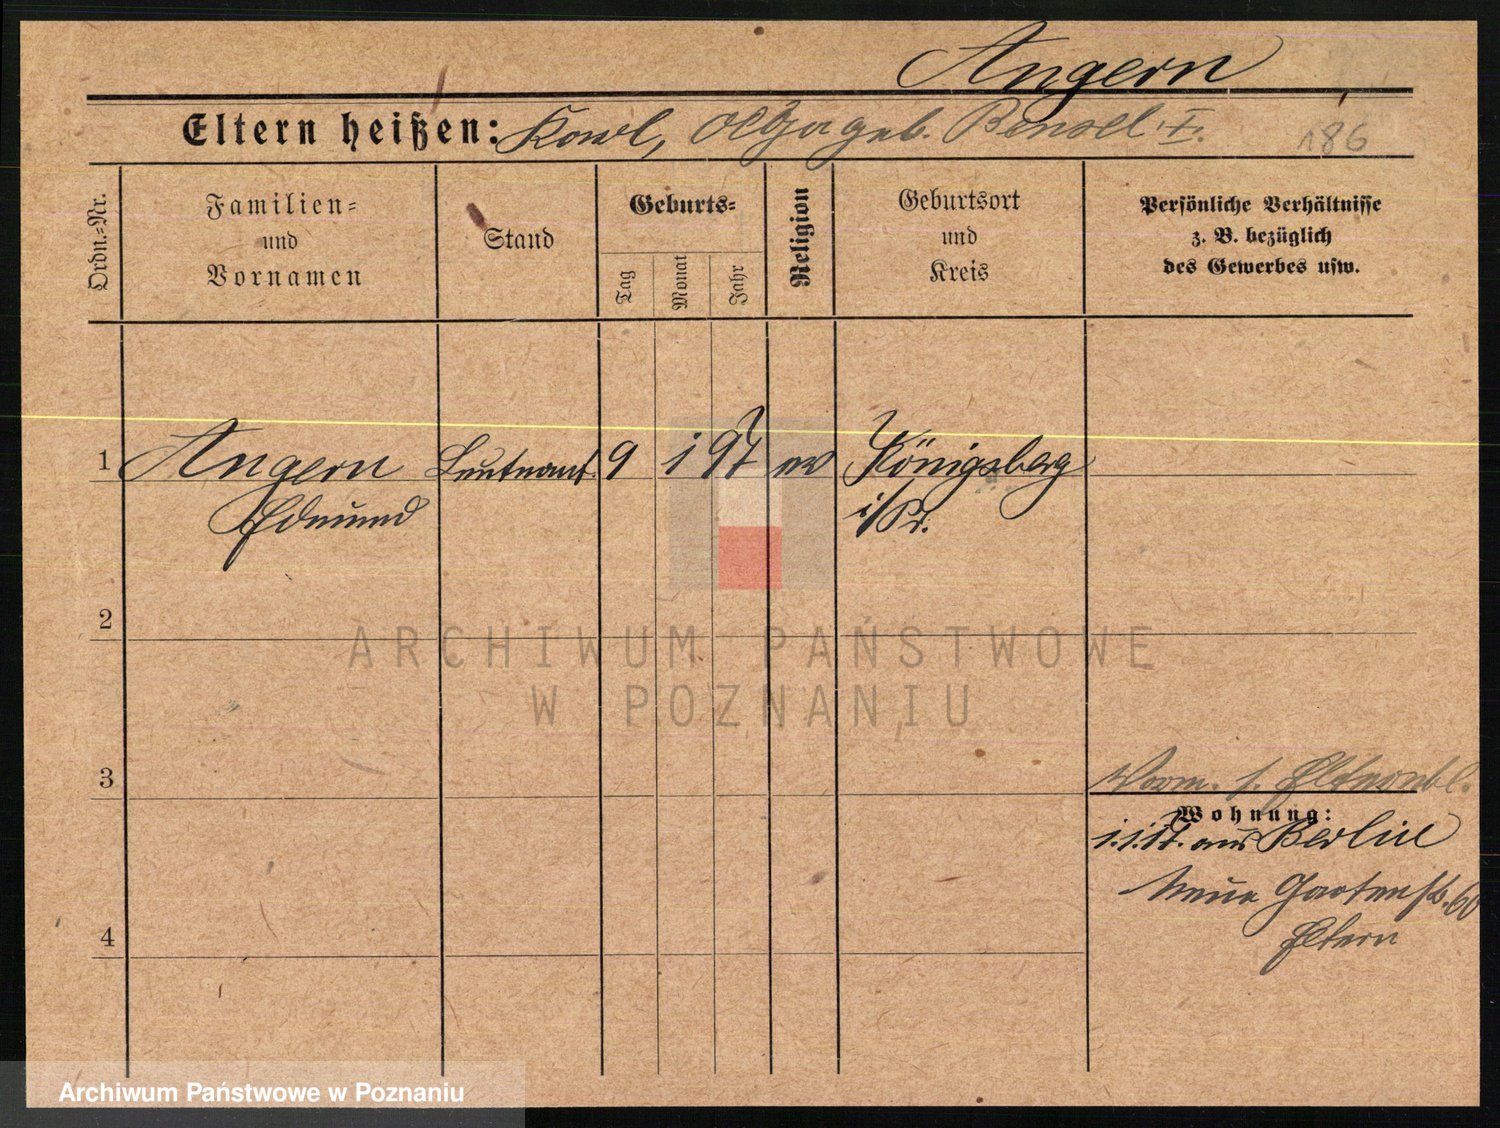 Angern
Eltern heißen: Karl, Olga geb. Bensel I.
186
Ordn.-Nr.
Familien-
und
Vornamen
Stand
Geburts-
Tag
Monat
Jahr
Religion
Geburtsort
und
Kreis
Persönliche Verhältnisse
z. B. bezüglich
des Gewerbes usw.
1 Angern Leutnant 9 1 97 ev Königsberg
Edmund i/Pr.
2
3
Verm. s. Elternbl.
Wohnung:
1.1.17. aus Berlin
Neue Gartenstr. 60
Eltern
4
ARCHIWUM PAŃSTWOWE
W POZNANIU
Archiwum Państwowe w Poznaniu